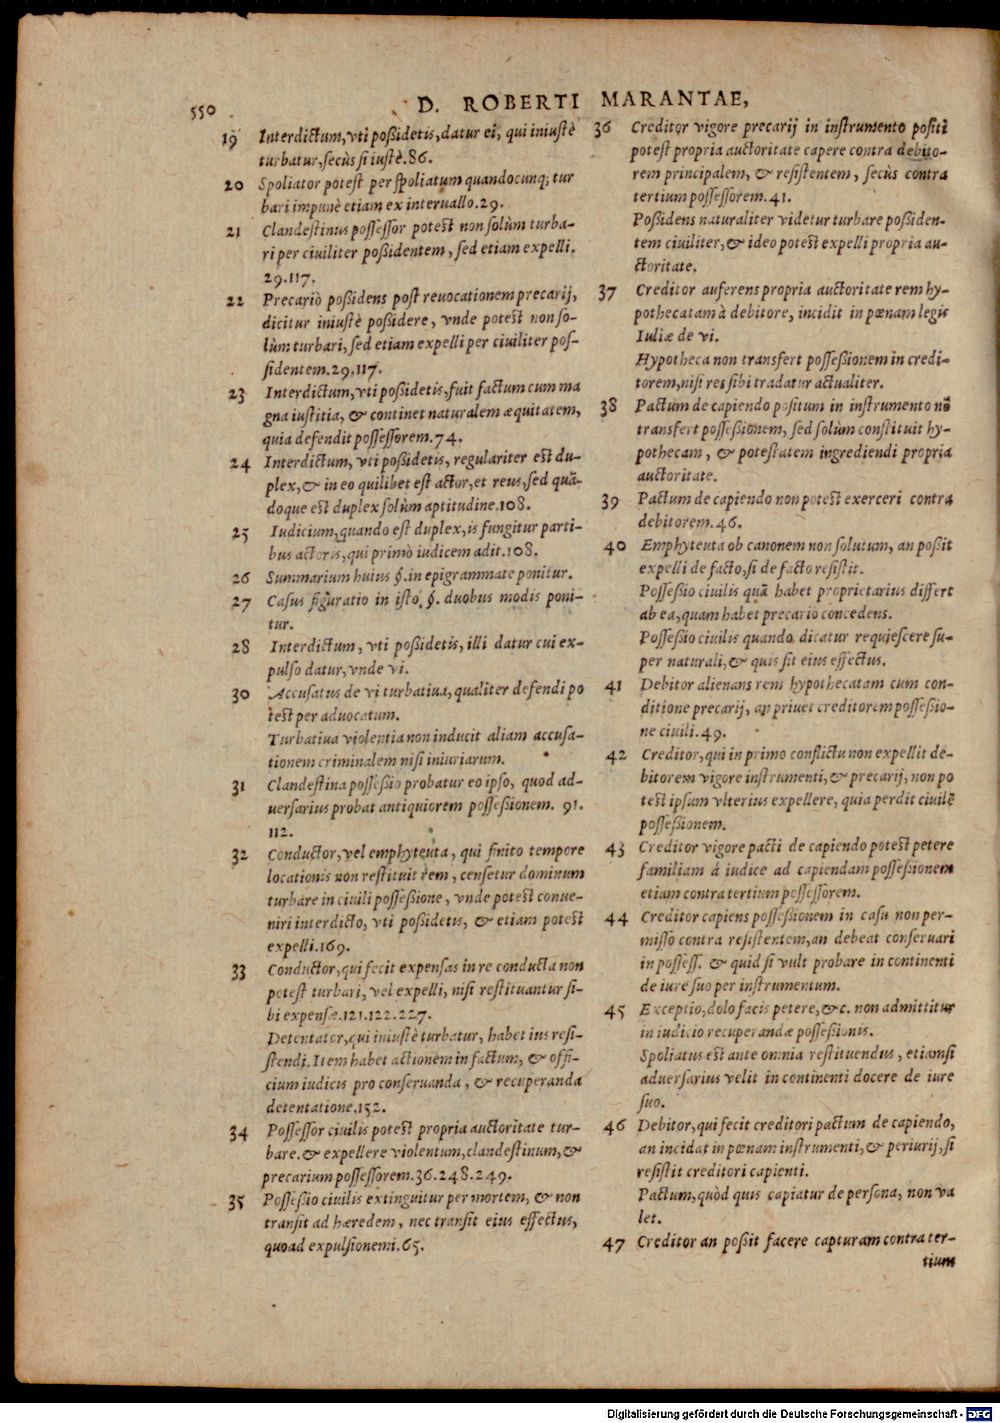 550
D. ROBERTI MARANTAE,
19 Interdictum, vti poßidetis, datur ei, qui iniustè
turbatur, secùs si iustè.86.
20 Spoliator potest per spoliatum quandocunq; tur
bari impunè etiam ex interuallo.29.
21 Clandestinus possessor potest non solùm turba-
ri per ciuiliter poßidentem, sed etiam expelli.
29.117.
22 Precariò poßidens post reuocationem precarij,
dicitur iniustè poßidere, vnde potest non so-
lùm turbari, sed etiam expelli per ciuiliter pos-
sidentem.29.117.
23 Interdictum, vti poßidetis, fuit factum cum ma
gna iustitia, & continet naturalem æquitatem,
quia defendit possessorem.74.
24 Interdictum, vti poßidetis, regulariter est du-
plex, & in eo quilibet est actor, et reus, sed quã-
doque est duplex solùm aptitudine.108.
25 Iudicium, quando est duplex, is fungitur parti-
bus actoris, qui primò iudicem adit.108.
26 Summarium huius §. in epigrammate ponitur.
27 Casus figuratio in isto §. duobus modis poni-
tur.
28 Interdictum, vti poßidetis, illi datur cui ex-
pulso datur, vnde vi.
30 Accusatus de vi turbatiua, qualiter defendi po
test per aduocatum.
Turbatiua violentia non inducit aliam accusa-
tionem criminalem nisi iniuriarum.
31 Clandestina possessio probatur eo ipso, quod ad-
uersarius probat antiquiorem possessionem. 91.
112.
32 Conductor, vel emphyteuta, qui finito tempore
locationis non restituit rem, censetur dominum
turbare in ciuili possessione, vnde potest conue-
niri interdicto, vti poßidetis, & etiam potest
expelli.169.
33 Conductor, qui fecit expensas in re conducta non
potest turbari, vel expelli, nisi restituantur si-
bi expensæ.121.122.227.
Detentator, qui iniustè turbatur, habet ius resi-
stendi. Item habet actionem in factum, & offi-
cium iudicis pro conseruanda, & recuperanda
detentatione.152.
34 Possessor ciuilis potest propria auctoritate tur-
bare. & expellere violentum, clandestinum, &
precarium possessorem.36.248.249.
35 Possessio ciuilis extinguitur per mortem, & non
transit ad hæredem, nec transit eius effectus,
quoad expulsionemi.65.
36 Creditor vigore precarij in instrumento positi
potest propria auctoritate capere contra debito-
rem principalem, & resistentem, secùs contra
tertium possessorem.41.
Poßidens naturaliter videtur turbare poßiden-
tem ciuiliter, & ideo potest expelli propria au-
ctoritate.
37 Creditor auferens propria auctoritate rem hy-
pothecatam à debitore, incidit in pœnam legis
Iuliæ de vi.
Hypotheca non transfert possessionem in credi-
torem, nisi res sibi tradatur actualiter.
38 Pactum de capiendo positum in instrumento nõ
transfert possessionem, sed solùm constituit hy-
pothecam, & potestatem ingrediendi propria
auctoritate.
39 Pactum de capiendo non potest exerceri contra
debitorem.46.
40 Emphyteuta ob canonem non solutum, an possit
expelli de facto, si de facto resistit.
Possessio ciuilis quã habet proprietarius differt
ab ea, quam habet precario concedens.
Possessio ciuilis quando dicatur requiescere su-
per naturali, & quis sit eius effectus.
41 Debitor alienans rem hypothecatam cum con-
ditione precarij, an priuet creditorem possessio-
ne ciuili.49.
42 Creditor, qui in primo conflictu non expellit de-
bitorem vigore instrumenti, & precarij, non po
test ipsum vlterius expellere, quia perdit ciuilẽ
possessionem.
43 Creditor vigore pacti de capiendo potest petere
familiam á iudice ad capiendam possessionem
etiam contra tertium possessorem.
44 Creditor capiens possessionem in casu non per-
misso contra resistentem, an debeat conseruari
in possess. & quid si vult probare in continenti
de iure suo per instrumentum.
45 Exceptio, dolo facis petere, &c. non admittitur
in iudicio recuperandæ possessionis.
Spoliatus est ante omnia restituendus, etiamsi
aduersarius velit in continenti docere de iure
suo.
46 Debitor, qui fecit creditori pactum de capiendo,
an incidat in pœnam instrumenti, & periurij, si
resistit creditori capienti.
Pactum, quòd quis capiatur de persona, non va
let.
47 Creditor an possit facere capturam contra ter-
tium
Digitalisierung gefördert durch die Deutsche Forschungsgemeinschaft - DFG